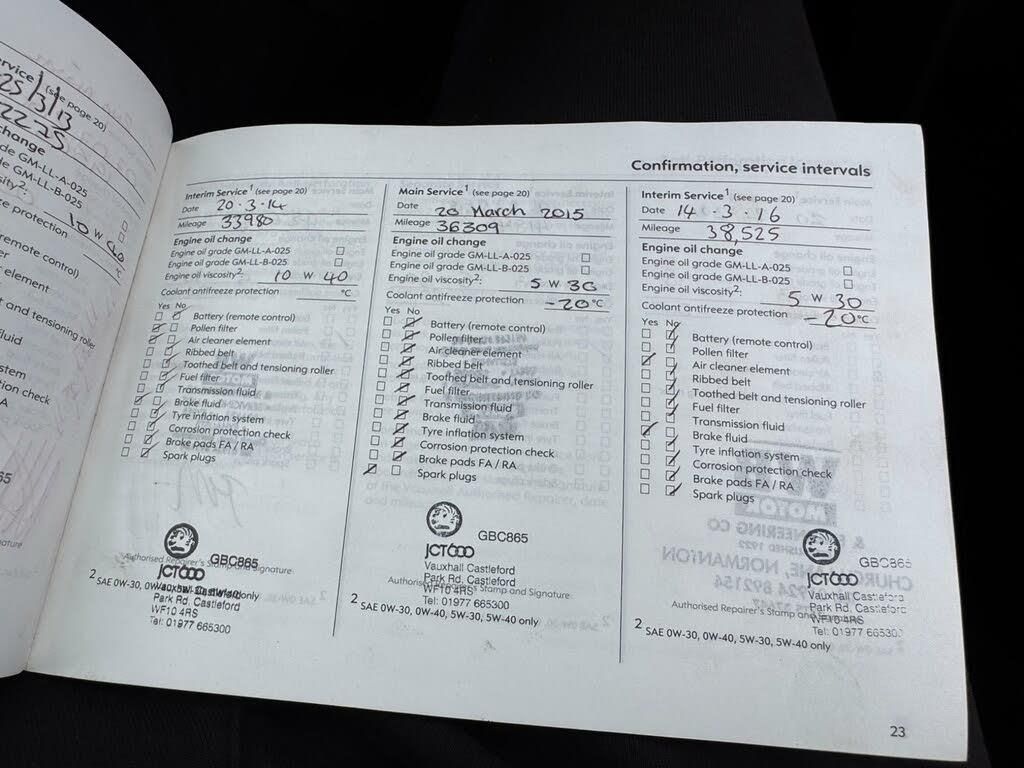 rvice (see page 20)
25/3/13
2275
change
de GM-LL-A-025
de GM-LL-B-025
sity2:
10 W 40
e protection
°C
remote control)
element
t and tensioning roller
fluid
stem
tion check
A
65
nature
Confirmation, service intervals
Interim Service1 (see page 20)
Date 20.3.14
Mileage 33980
Engine oil change
Engine oil grade GM-LL-A-025
Engine oil grade GM-LL-B-025
Engine oil viscosity2: 10 W 40
Coolant antifreeze protection °C
Yes No
Battery (remote control)
Pollen filter
Air cleaner element
Ribbed belt
Toothed belt and tensioning roller
Fuel filter
Transmission fluid
Brake fluid
Tyre inflation system
Corrosion protection check
Brake pads FA / RA
Spark plugs
GBC865
Authorised Repairer's Stamp and Signature
JCT600
2 SAE 0W-30, 0W-40, 5W-30, 5W-40 only
Vauxhall Castleford
Park Rd. Castleford
WF10 4RS
Tel: 01977 665300
Main Service1 (see page 20)
Date 20 March 2015
Mileage 36309
Engine oil change
Engine oil grade GM-LL-A-025
Engine oil grade GM-LL-B-025
Engine oil viscosity2: 5 W 30
Coolant antifreeze protection -20°C
Yes No
Battery (remote control)
Pollen filter
Air cleaner element
Ribbed belt
Toothed belt and tensioning roller
Fuel filter
Transmission fluid
Brake fluid
Tyre inflation system
Corrosion protection check
Brake pads FA / RA
Spark plugs
GBC865
JCT600
Vauxhall Castleford
Park Rd. Castleford
Authorised Repairer's Stamp and Signature
WF10 4RS
Tel: 01977 665300
2 SAE 0W-30, 0W-40, 5W-30, 5W-40 only
Interim Service1 (see page 20)
Date 14.3.16
Mileage 38,525
Engine oil change
Engine oil grade GM-LL-A-025
Engine oil grade GM-LL-B-025
Engine oil viscosity2: 5 W 30
Coolant antifreeze protection -20°C
Yes No
Battery (remote control)
Pollen filter
Air cleaner element
Ribbed belt
Toothed belt and tensioning roller
Fuel filter
Transmission fluid
Brake fluid
Tyre inflation system
Corrosion protection check
Brake pads FA / RA
Spark plugs
GBC865
JCT600
Vauxhall Castleford
Park Rd. Castleford
Authorised Repairer's Stamp and Signature
WF10 4RS
Tel: 01977 665300
2 SAE 0W-30, 0W-40, 5W-30, 5W-40 only
23